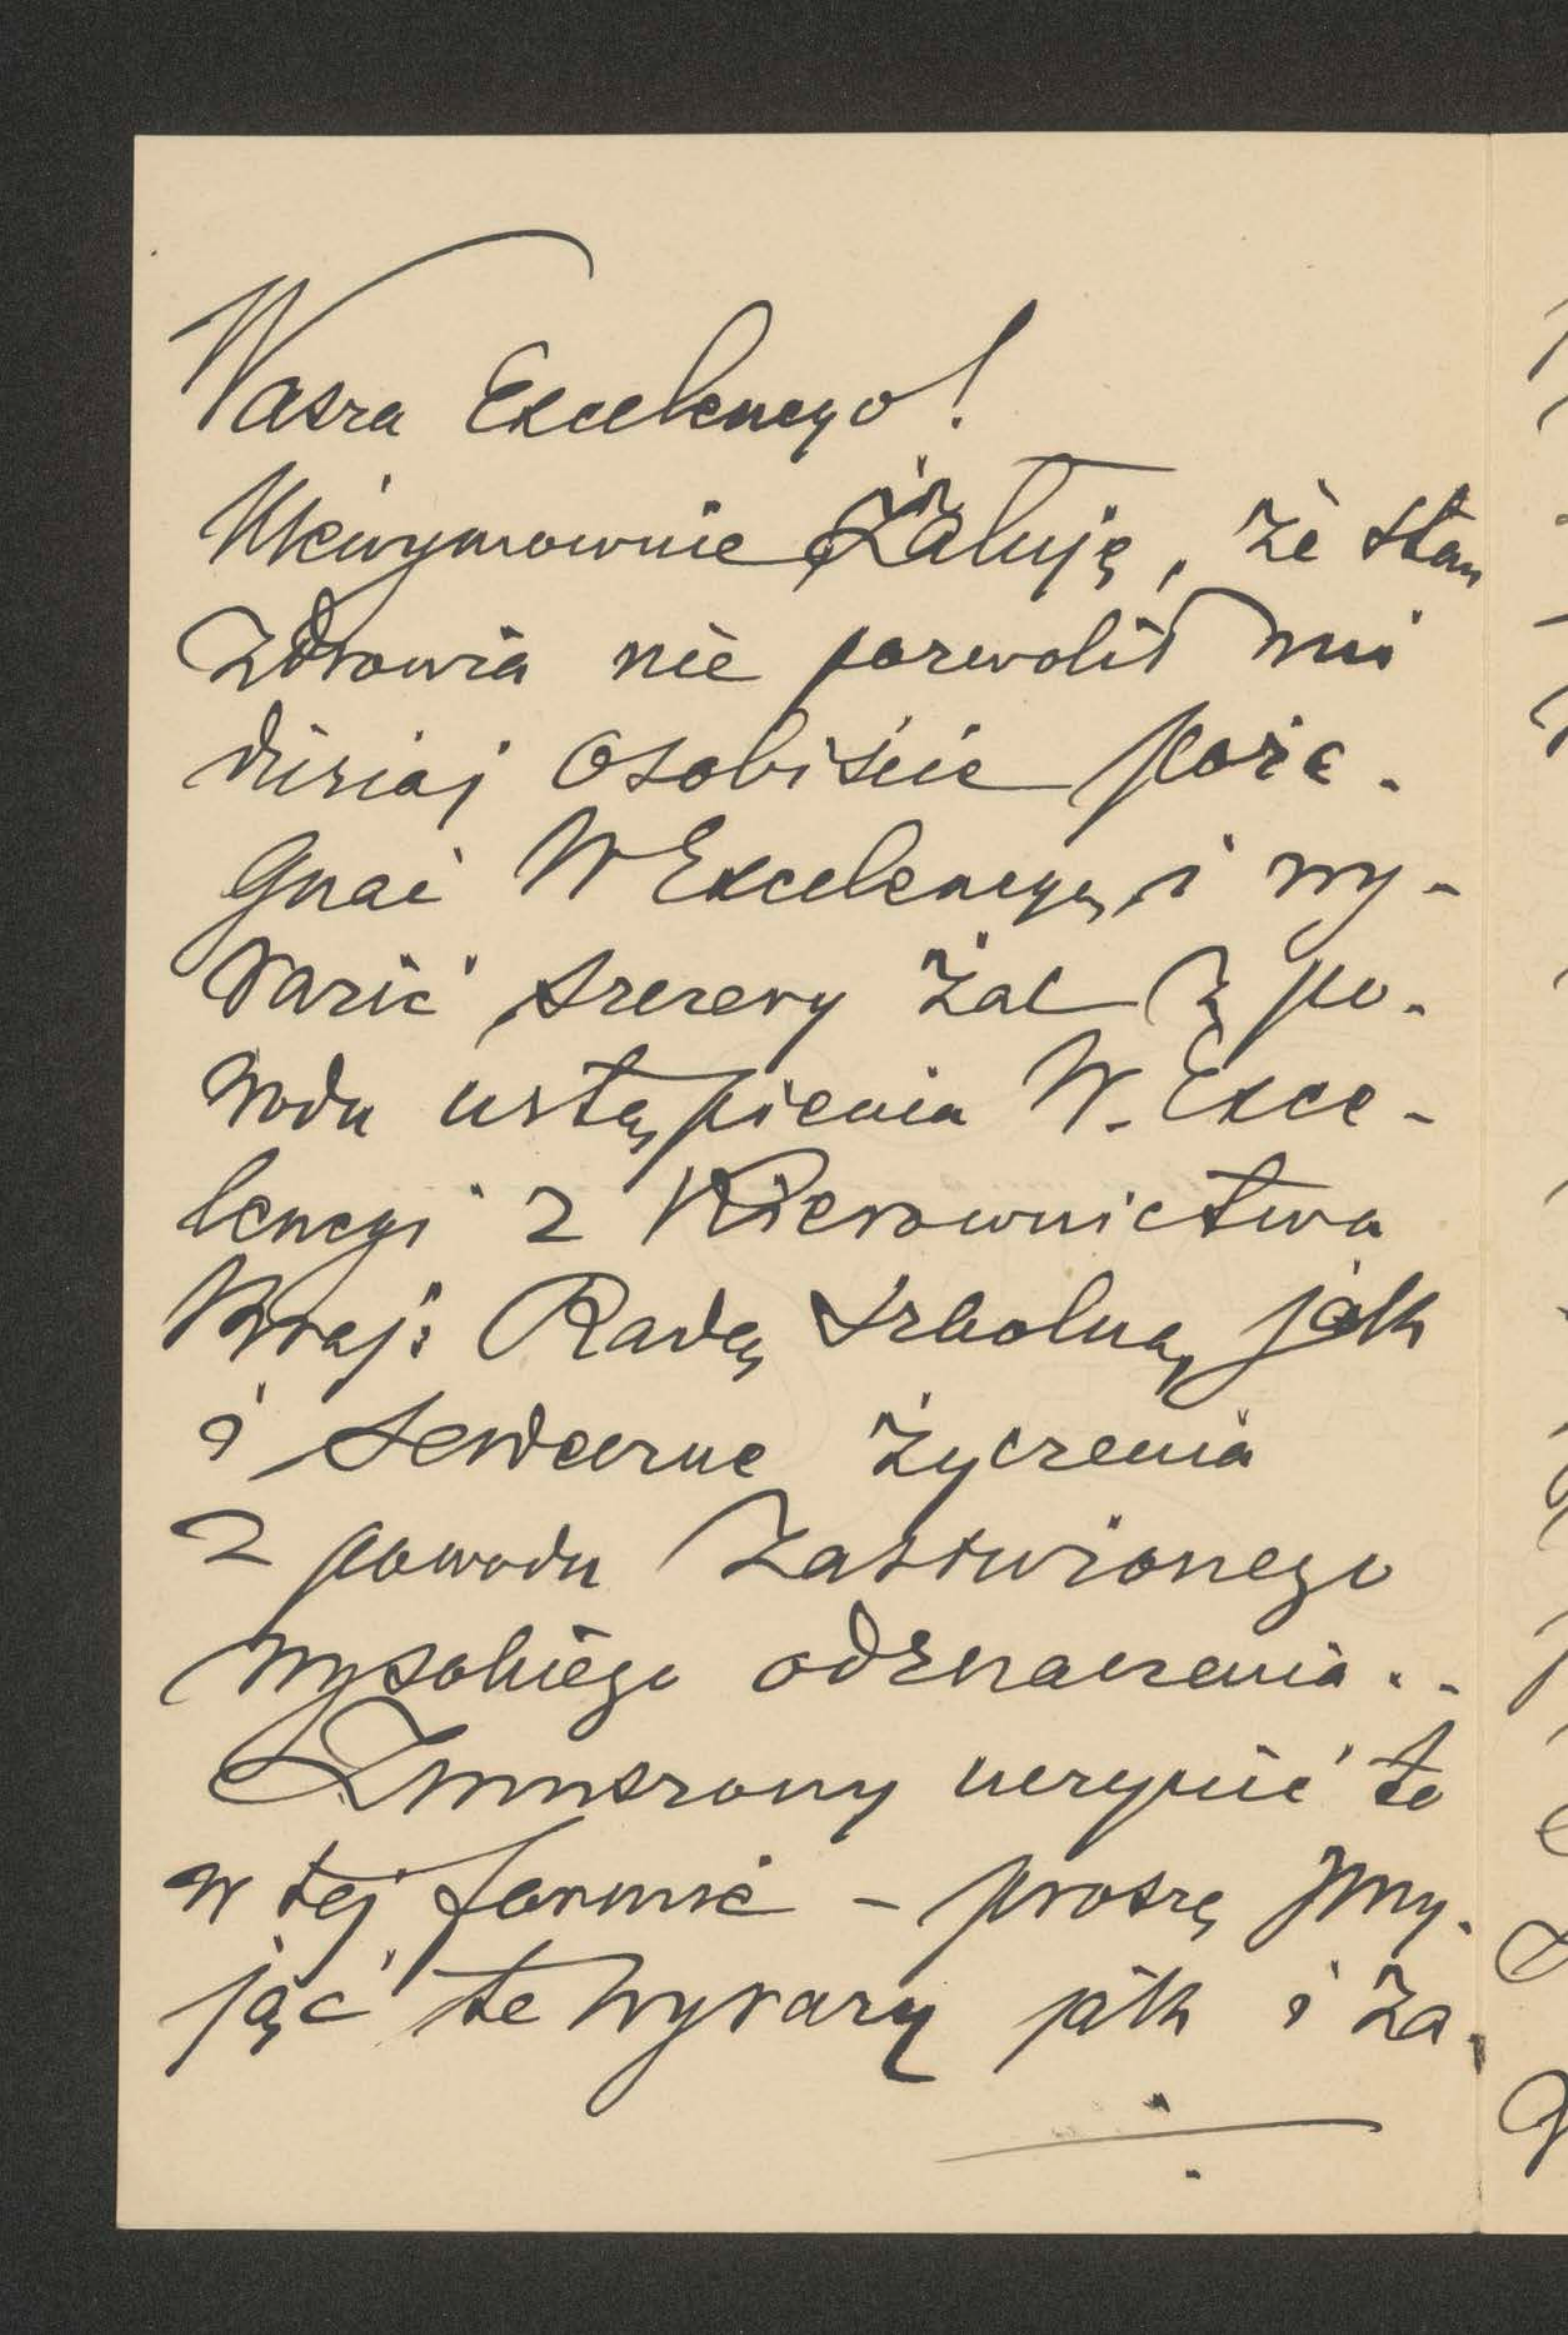 Wasza Excelencyo!
Niewymownie żałuję, że stan
zdrowia nie pozwolił mi
dzisiaj osobiście poże-
gnać W Excelencyę i wy-
razić szczery żal z po-
wodu ustąpienia W. Exce-
lencyi z Kierownictwa
Kraj: Radą Szkolną jak
i serdeczne życzenia
z powodu zasłużonego
wysokiego odznaczenia..
Zmuszony uczynić to
w tej formie - proszę przy-
jąć te wyrazy jak i za-